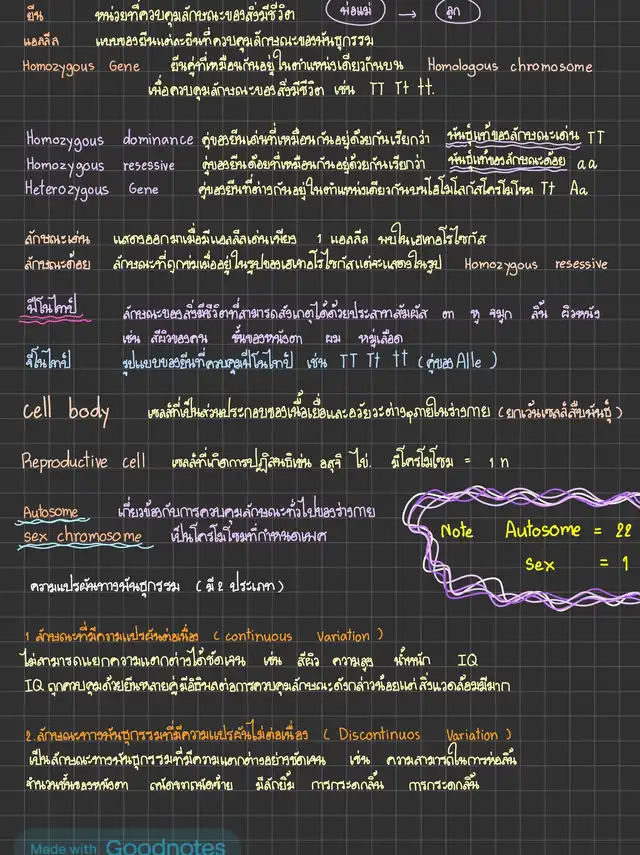 ยีน หน่วยที่ควบคุมลักษณะของสิ่งมีชีวิต พ่อแม่ → ลูก
แอลลีล แบบของยีนแต่ละยีนที่ควบคุมลักษณะของพันธุกรรม
Homozygous Gene ยีนคู่ที่เหมือนกันอยู่ในตำแหน่งเดียวกันบน Homologous chromosome
เพื่อควบคุมลักษณะของสิ่งมีชีวิต เช่น TT Tt tt.
Homozygous dominance คู่ของยีนเด่นที่เหมือนกันอยู่ด้วยกันเรียกว่า พันธุ์แท้ของลักษณะเด่น TT
Homozygous resessive คู่ของยีนด้อยที่เหมือนกันอยู่ด้วยกันเรียกว่า พันธุ์แท้ของลักษณะด้อย aa
Heterozygous Gene คู่ของยีนที่ต่างกันอยู่ในตำแหน่งเดียวกันบนโฮโมโลกัสโครโมโซม Tt Aa
ลักษณะเด่น แสดงออกมาเมื่อมีแอลลีลเด่นเพียง 1 แอลลีล พบในเฮเทอโรไซกัส
ลักษณะด้อย ลักษณะที่ถูกข่มเมื่ออยู่ในรูปของเฮเทอโรไซกัสแต่จะแสดงในรูป Homozygous resessive
ฟีโนไทป์ ลักษณะของสิ่งมีชีวิตที่สามารถสังเกตุได้ด้วยประสาทสัมผัส ตา หู จมูก ลิ้น ผิวหนัง
เช่น สีผิวของคน ชั้นของหนังตา ผม หมู่เลือด
จีโนไทป์ รูปแบบของยีนที่ควบคุมฟีโนไทป์ เช่น TT Tt tt (คู่ของ Alle )
cell body เซลล์ที่เป็นส่วนประกอบของเนื้อเยื่อและอวัยวะต่างๆภายในร่างกาย (ยกเว้นเซลล์สืบพันธุ์)
Reproductive cell เซลล์ที่เกิดการปฏิสนธิเช่น อสุจิ ไข่. มีโครโมโซม = 1 n
Autosome เกี่ยวข้องกับการควบคุมลักษณะทั่วไปของร่างกาย
sex chromosome เป็นโครโมโซมที่กำหนดเพศ
Note Autosome = 22
sex = 1
ความแปรผันทางพันธุกรรม ( มี 2 ประเภท )
1 ลักษณะที่มีความแปรผันต่อเนื่อง ( continuous Variation )
ไม่สามารถแยกความแตกต่างได้ชัดเจน เช่น สีผิว ความสูง น้ำหนัก IQ
IQ ถูกควบคุมด้วยยีนหลายคู่มีอิธิพลต่อการควบคุมลักษณะดังกล่าวน้อยแต่สิ่งแวดล้อมมีมาก
2.ลักษณะทางพันธุกรรมที่มีความแปรผันไม่ต่อเนื่อง ( Discontinuos Variation )
เป็นลักษณะทางพันธุกรรมที่มีความแตกต่างอย่างชัดเจน เช่น ความสามารถในการห่อลิ้น
จำนวนชั้นของหนังตา ถนัดขวาถนัดซ้าย มีลักยิ้ม การกระดกลิ้น การกระดกลิ้น
Made with Goodnotes